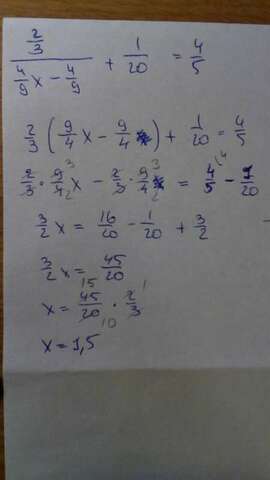 (2/3)/(4/9 x - 4/9) + 1/20 = 4/5
2/3 (9/4 x - 9/4) + 1/20 = 4/5
2/3 · 9/4 x - 2/3 · 9/4 = 4/5 - 1/20
3/2 x = 16/20 - 1/20 + 3/2
3/2 x = 45/20
x = 45/20 · 2/3
x = 1,5